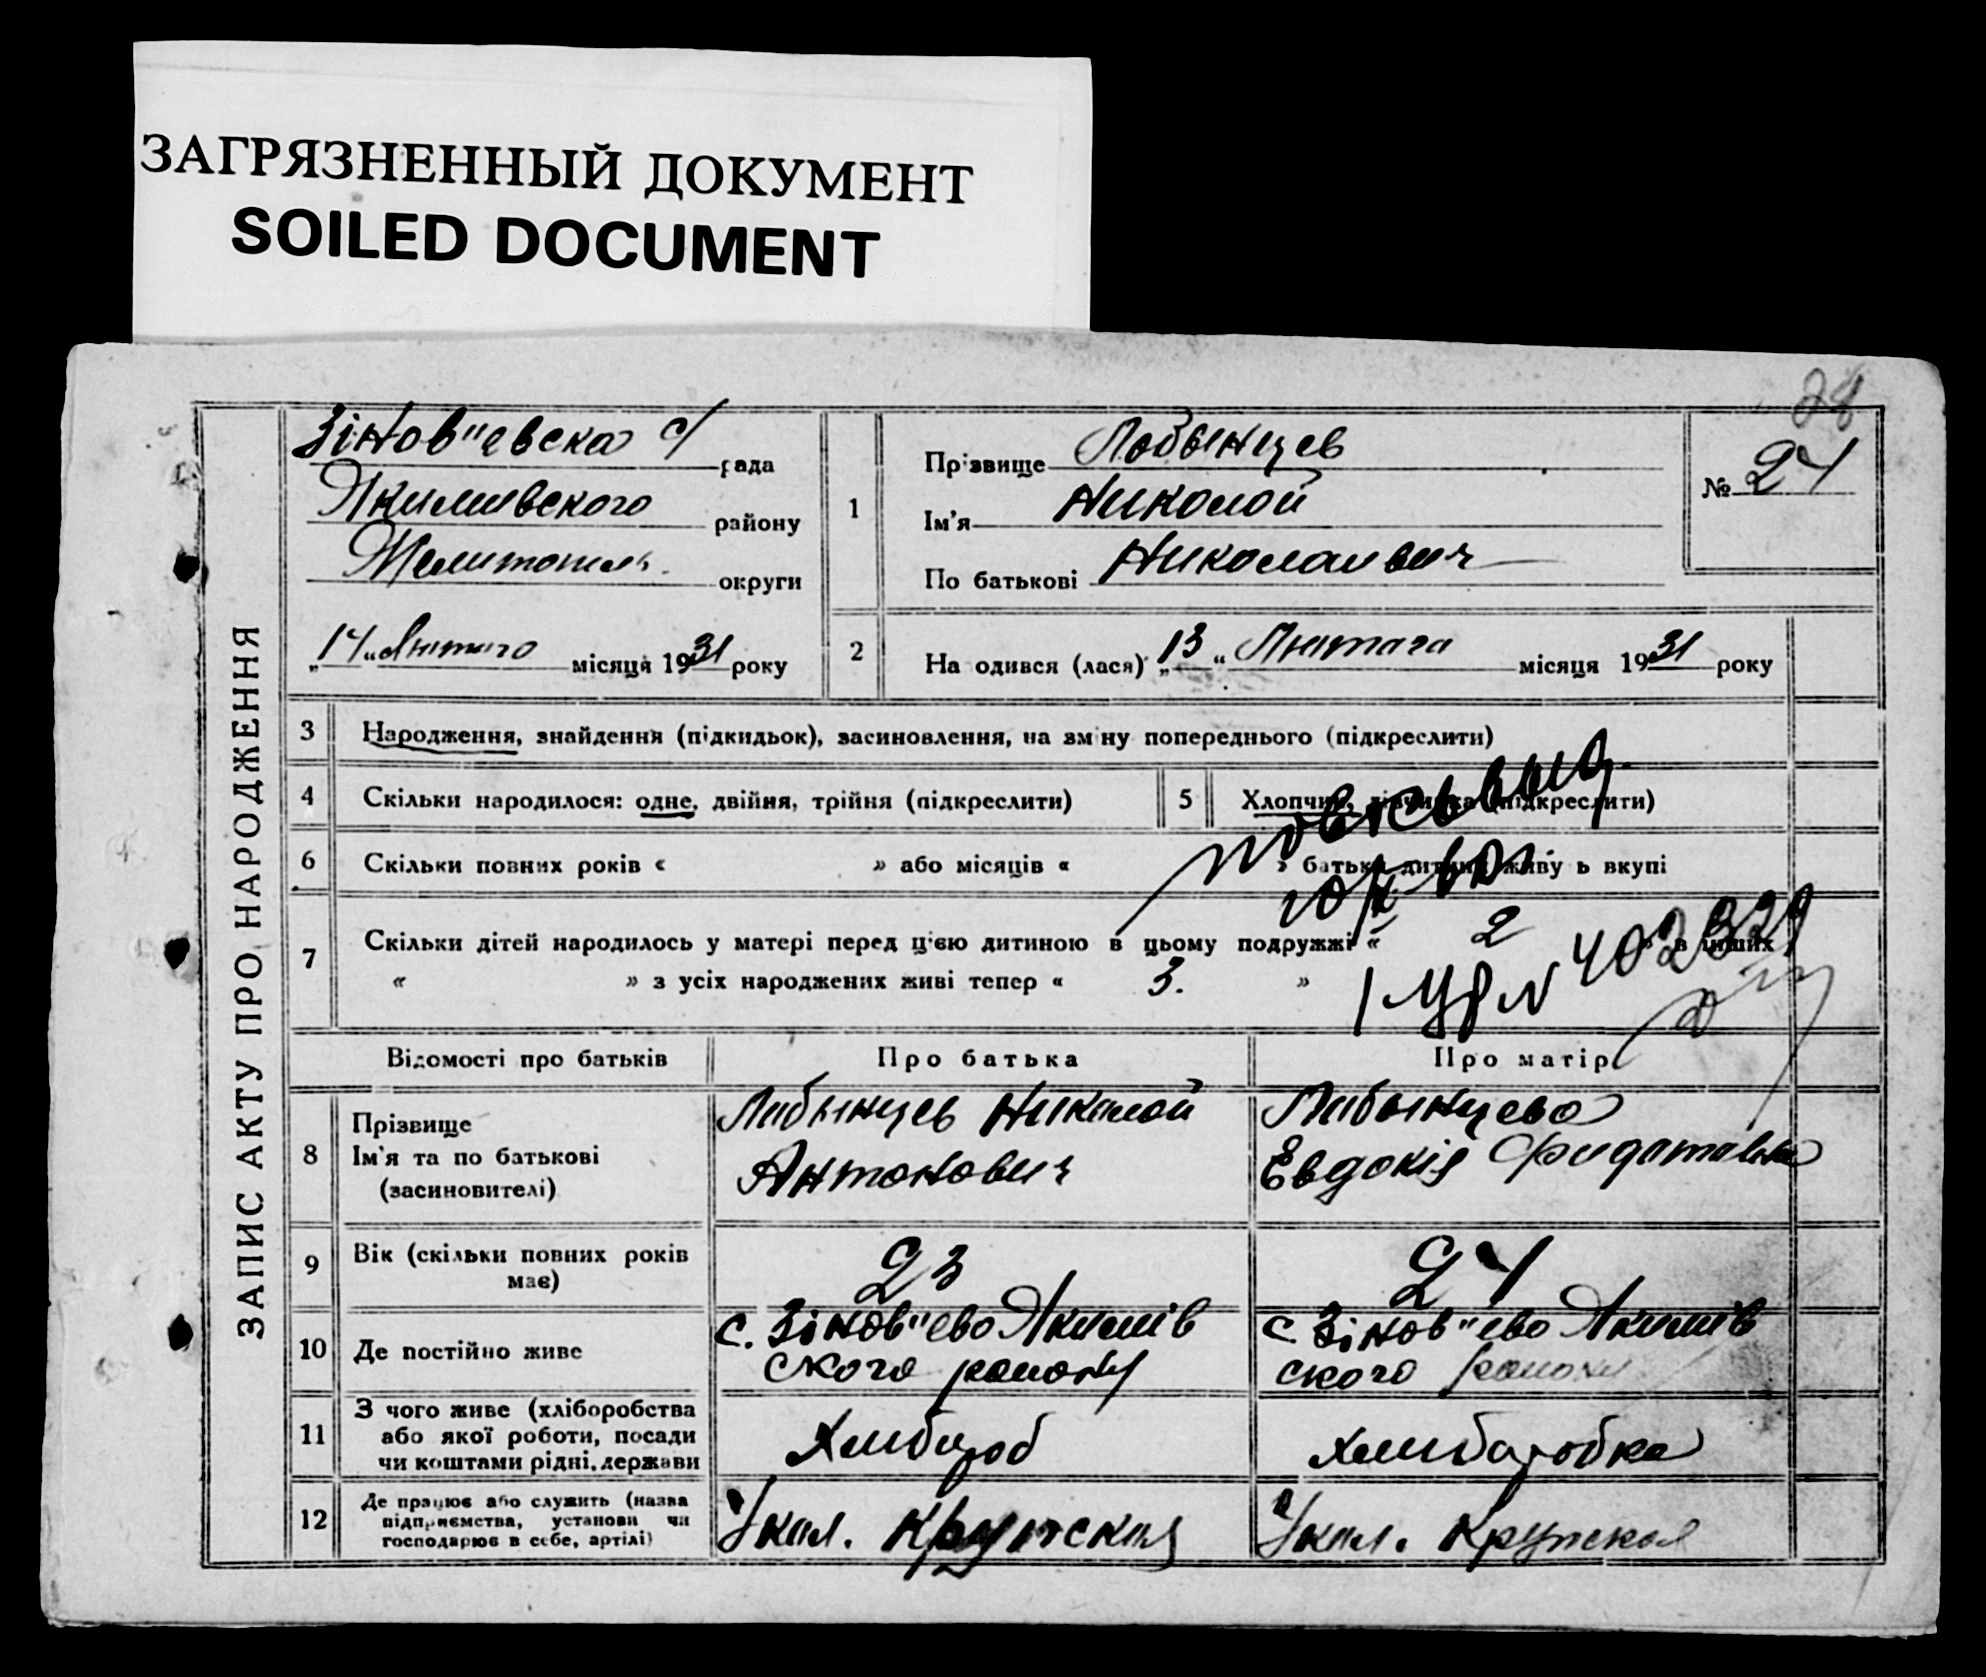 ЗАГРЯЗНЕННЫЙ ДОКУМЕНТ
SOILED DOCUMENT
28
ЗАПИС АКТУ ПРО НАРОДЖЕННЯ
Зінов"евска с/ рада
Якимивского району
Мелитополь округи
„14“ Лютого місяця 1931 року
1
Прізвище Лобынцев
Ім'я Николой
По батькові Николаивич
№ 24
2
На одився (лася) „13“ Лютага місяця 1931 року
3 Народження, знайдення (підкидьок), засиновлення, на зміну попереднього (підкреслити)
4 Скільки народилося: одне, двійня, трійня (підкреслити)
5 Хлопчик, дівчинка (підкреслити)
6 Скільки повних років « » або місяців « » батьки дитини живу ь вкупі
7 Скільки дітей народилось у матері перед цією дитиною в цьому подружжі « 2 » в інших
« » з усіх народжених живі тепер « 3. »
402329
Відомості про батьків Про батька Про матір
8 Прізвище
Ім'я та по батькові
(засиновителі)
Лабынцев Николой
Антонович
Лабынцева
Евдокія Фидотовна
9 Вік (скільки повних років
має)
23
24
10 Де постійно живе
с. Зінов"ево Якимів
ского району
с. Зінов"ево Якимів
ского району
11 З чого живе (хліборобства
або якої роботи, посади
чи коштами рідні, держави
Хлибороб
хлиборобка
12 Де працює або служить (назва
підприємства, установи чи
господарює в себе, артілі)
Укол. Крупская
Укол. Крупская